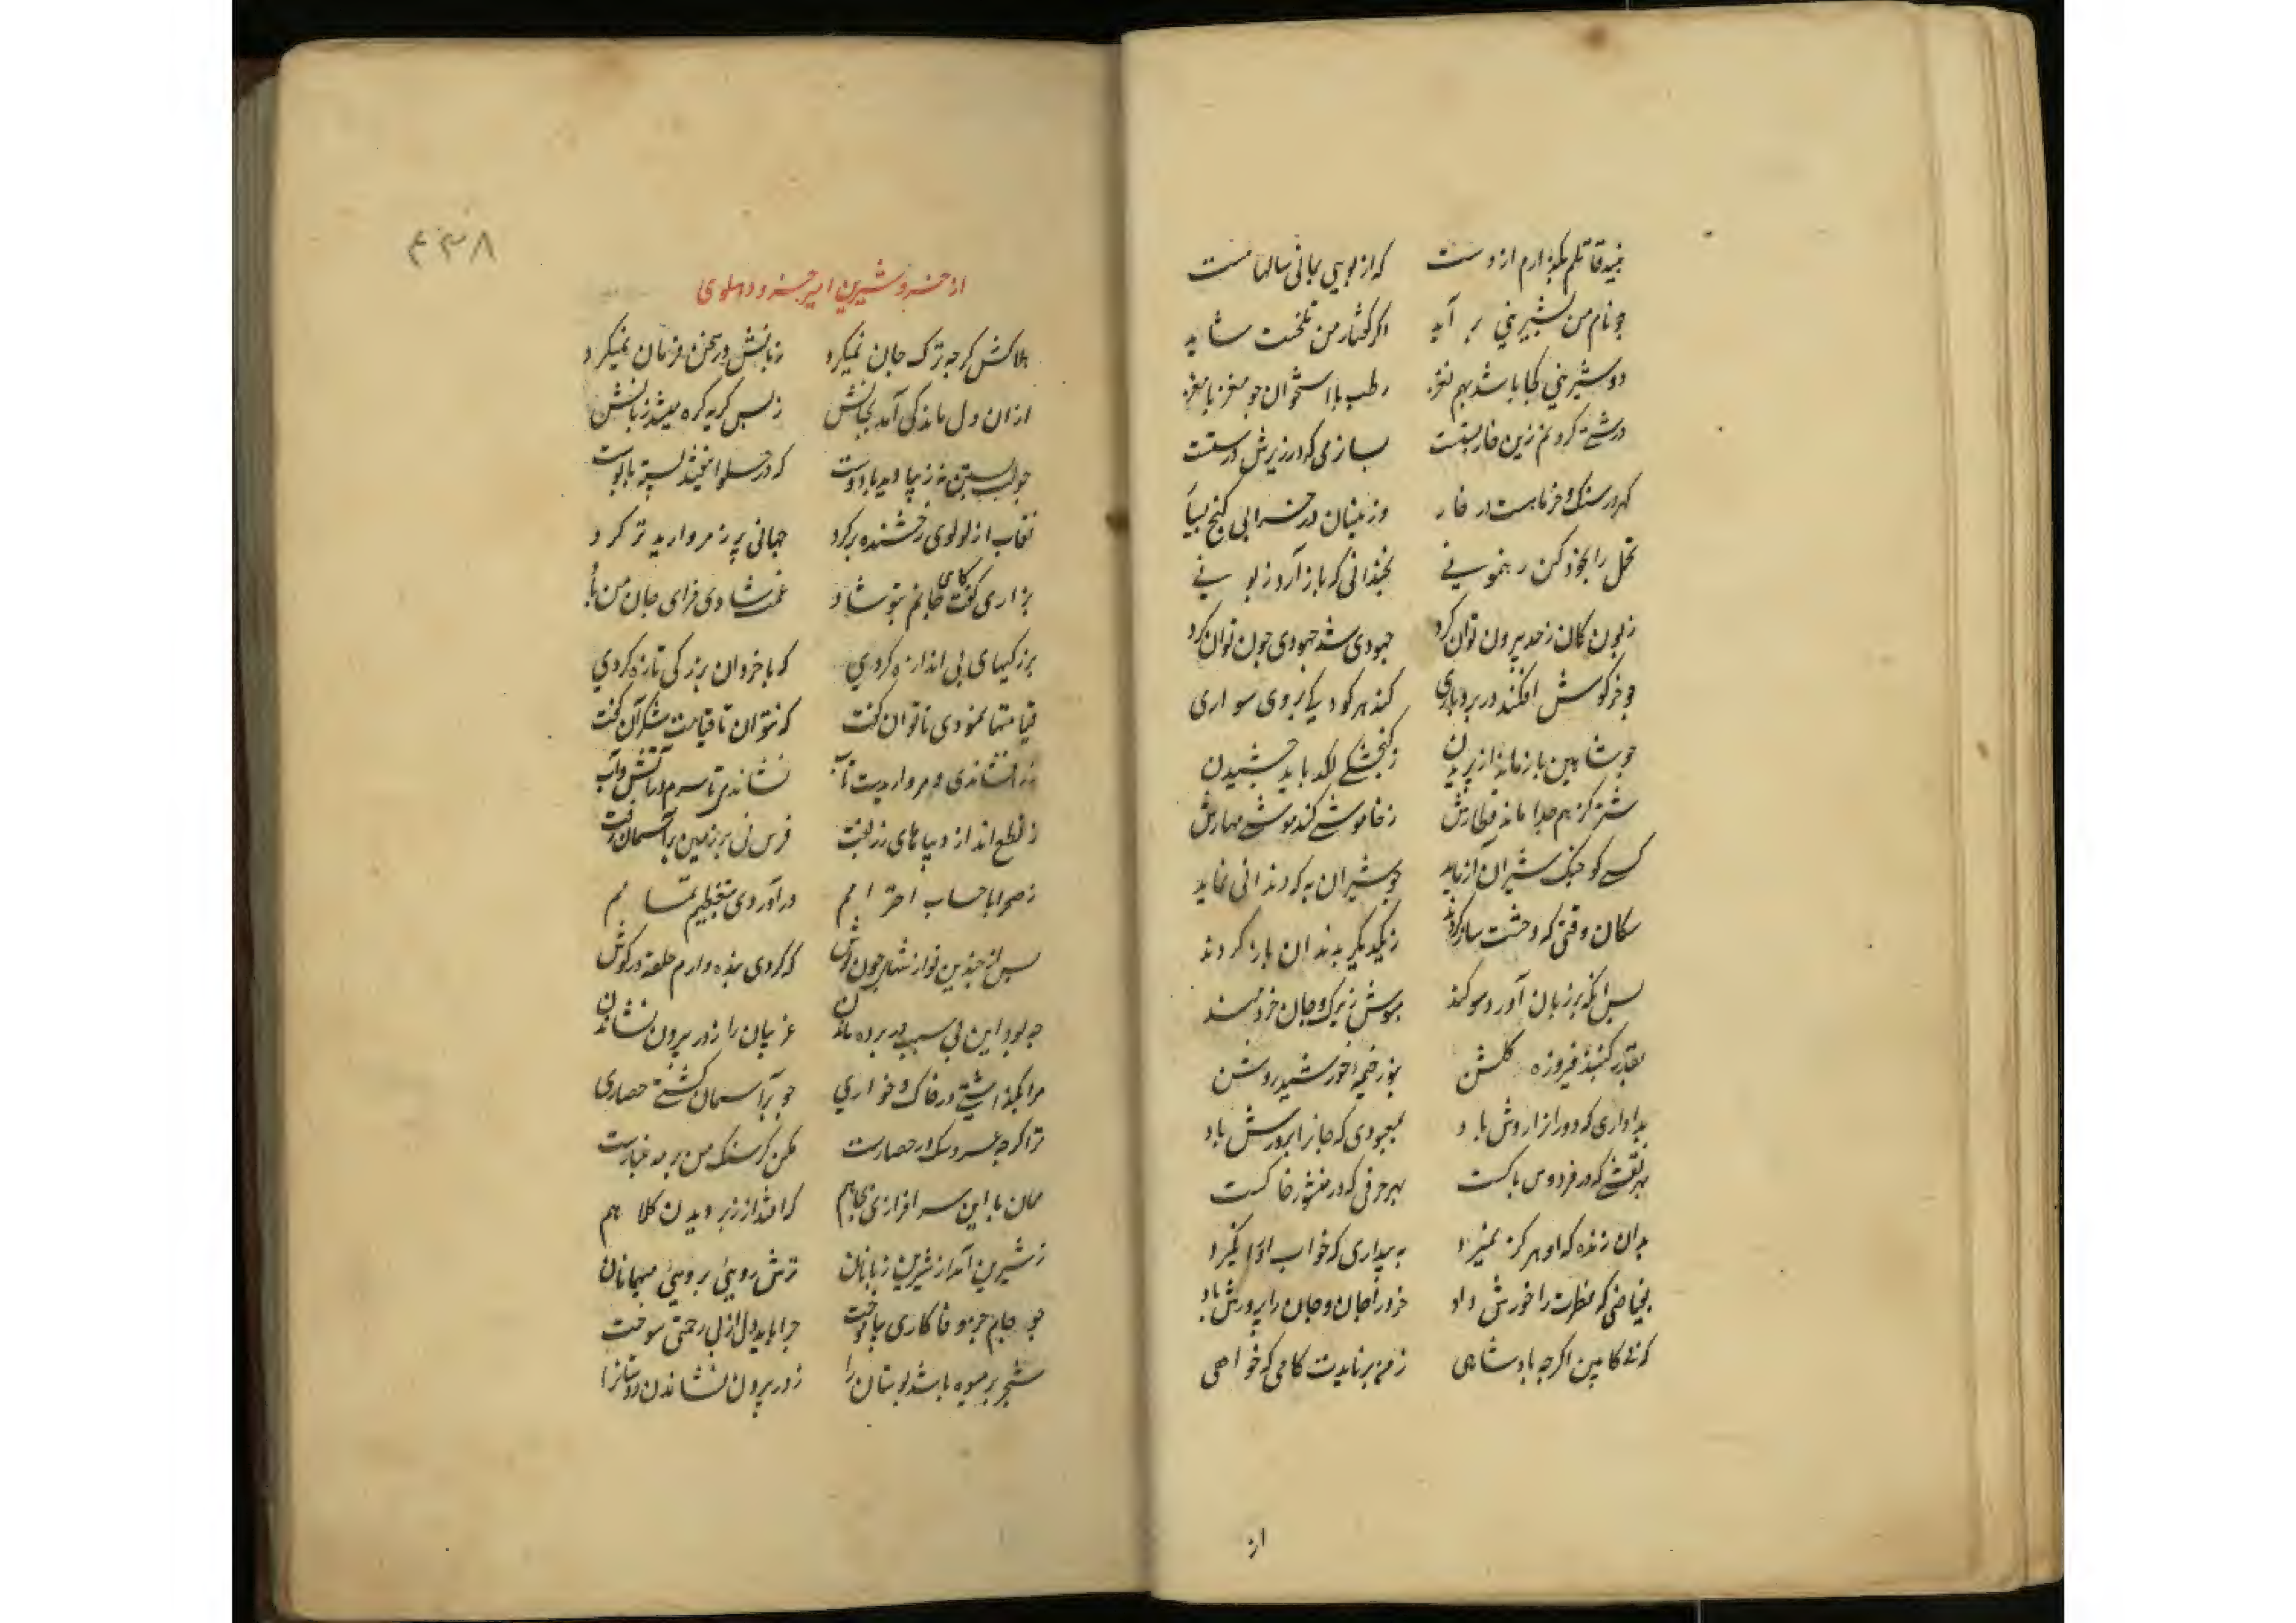 نبیذ قاتلم بگذارم از دست که از بویی بمانی سالها مست
چو نام من بشیرینی بر آید اگر گفتار من تلخست شاید
دو شیرینی کجا باشد بهم نغز رطب با استخوان جو مغز با مغز
درشتی کردنم زین خار پشتست بسا نرمی که در زیرش درستست
گهر در سنگ و خرما هست در خار وزینسان در خرابی گنج بسیار
تحمل را بخود کن رهنمونی نچندانی که بار آرد زبونی
زبون کان ز حد بیرون توان کرد جهودی شد جهودی چون توان کرد
چو خرگوش افکند در بردباری کند هر کودکی بروی سواری
چو شاهین باز ماند از پریدن ز گنجشک لگد باید چشیدن
شتر کز هم جدا ماند قطارش ز خاموشی کند موشی مهارش
کسی کو جنگ شیران آزماید چو شیران به که دندانی نماید
سگان وقتی که وحشت ساز کردند ز یکدیگر بدندان باز کردند
پس آنگه بر زبان آورد سوگند بهوش زیرک و جان خردمند
بقدر گنبد فیروزه گلشن بنور خیمه خورشید روشن
بداواری که دور از اروش باد بمعبودی که جانرا پرورش باد
بهر نقشی که در فردوس پاکست بهر حرفی که در منشور خاکست
بدان زنده که او هرگز نمیرد به بیداری که خواب او را نگیرد
بفیاضی که فطرت را خورش داد خرد را جان و جان را پرورش داد
که بی کابین اگرچه پادشاهی ز من برنایدت کامی که خواهی
از
۴۳۸
از خسرو شیرین امیر خسرو دهلوی
هلاکش گرچه ترک جان نمیکرد زبانش در سخن فرمان نمیکرد
از آن دل ماندگی آمد بجانش ز بس گریه گره میشد زبانش
چو لب بستن نه زیبا دید با دوست که در حلوا نیفتد پسته با پوست
نقاب از لولوی رخشنده بر کرد جهانی پر ز مروارید تر کرد
بزاری گفت کای جانم بتو شاد غمت شادی فزای جان من باد
بزرگیهای بی اندازه کردی که با خردان بزرگی تازه کردی
قیامتها نمودی ناتوان گفت که نتوان تا قیامت شکر آن گفت
زر افشاندی و مروارید تاب نشاندی تا سرم در آتش و آب
ز نطع انداز دیباهای زربفت فرس نی بر زمین بر آسمان رفت
ز صحرا با حساب احترامم در آوردی بتعظیم تمامم
پس از چندین نوازشها چون نوش که کردی بنده وارم حلقه در گوش
چه بود این بی سبب در پرده ماندن غریبان را ز در بیرون نشاندن
مرا بگذاشتی در خاک و خواری چو بر آسمان گشتی حصاری
ترا گرچه عروسک در حصارست مکن کز سنگ من بر مه غبارست
همان با این سرافرازی بجاهم که افتد از زبر دیدن کلاهم
ز شیرین آمد از شیرین زبانان ترش رویی بروی میهمانان
چو جانم جز وفا کاری نیاموخت چرا باید دل از بی رحمتی سوخت
شجر پر میوه باشد بوستان را ز در بیرون نشاندن دوستانرا